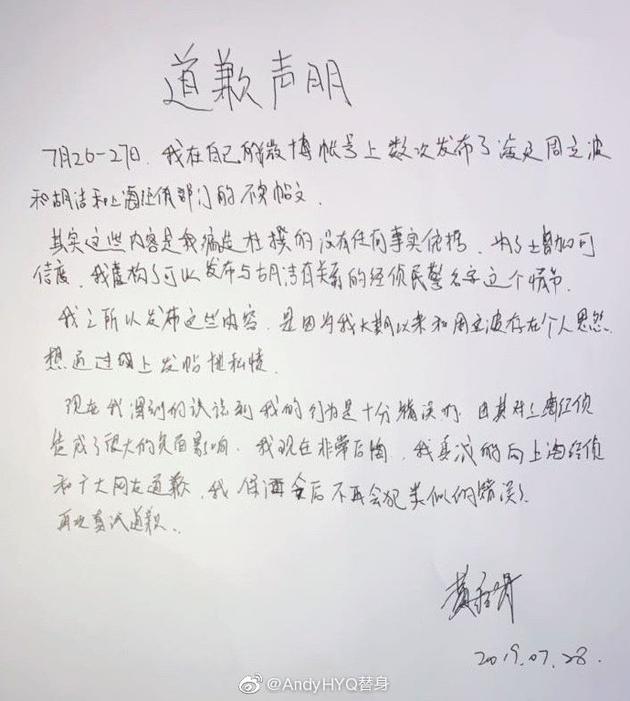 道歉声明
7月26-27日，我在自己的微博帐号上数次发布了涉及周立波
和胡洁和上海经侦部门的不实帖文．
其实这些内容是我编造杜撰的没有任何事实依据，为了增加可
信度，我虚构了可以发布与胡洁有关系的经侦民警名字这个情节．
我之所以发布这些内容，是因为我长期以来和周立波存在个人恩怨
想通过网上发帖泄私愤．
现在我深刻的认识到我的行为是十分错误的，尤其对上海经侦
造成了很大的负面影响．我现在非常后悔，我真诚的向上海经侦
和广大网友道歉，我保证今后不再会犯类似的错误．
再次真诚道歉．
2019.07.28.
@AndyHYQ替身